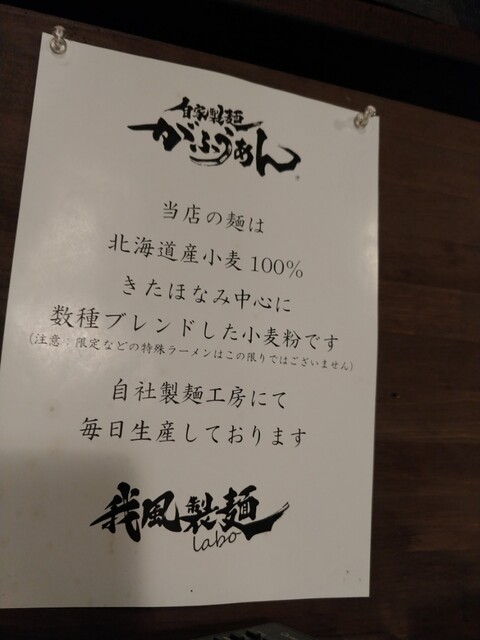 自家製麺
がふうあん
当店の麺は
北海道産小麦100%
きたほなみ中心に
数種ブレンドした小麦粉です
(注意：限定などの特殊ラーメンはこの限りではございません)
自社製麺工房にて
毎日生産しております
我風製麺
labo